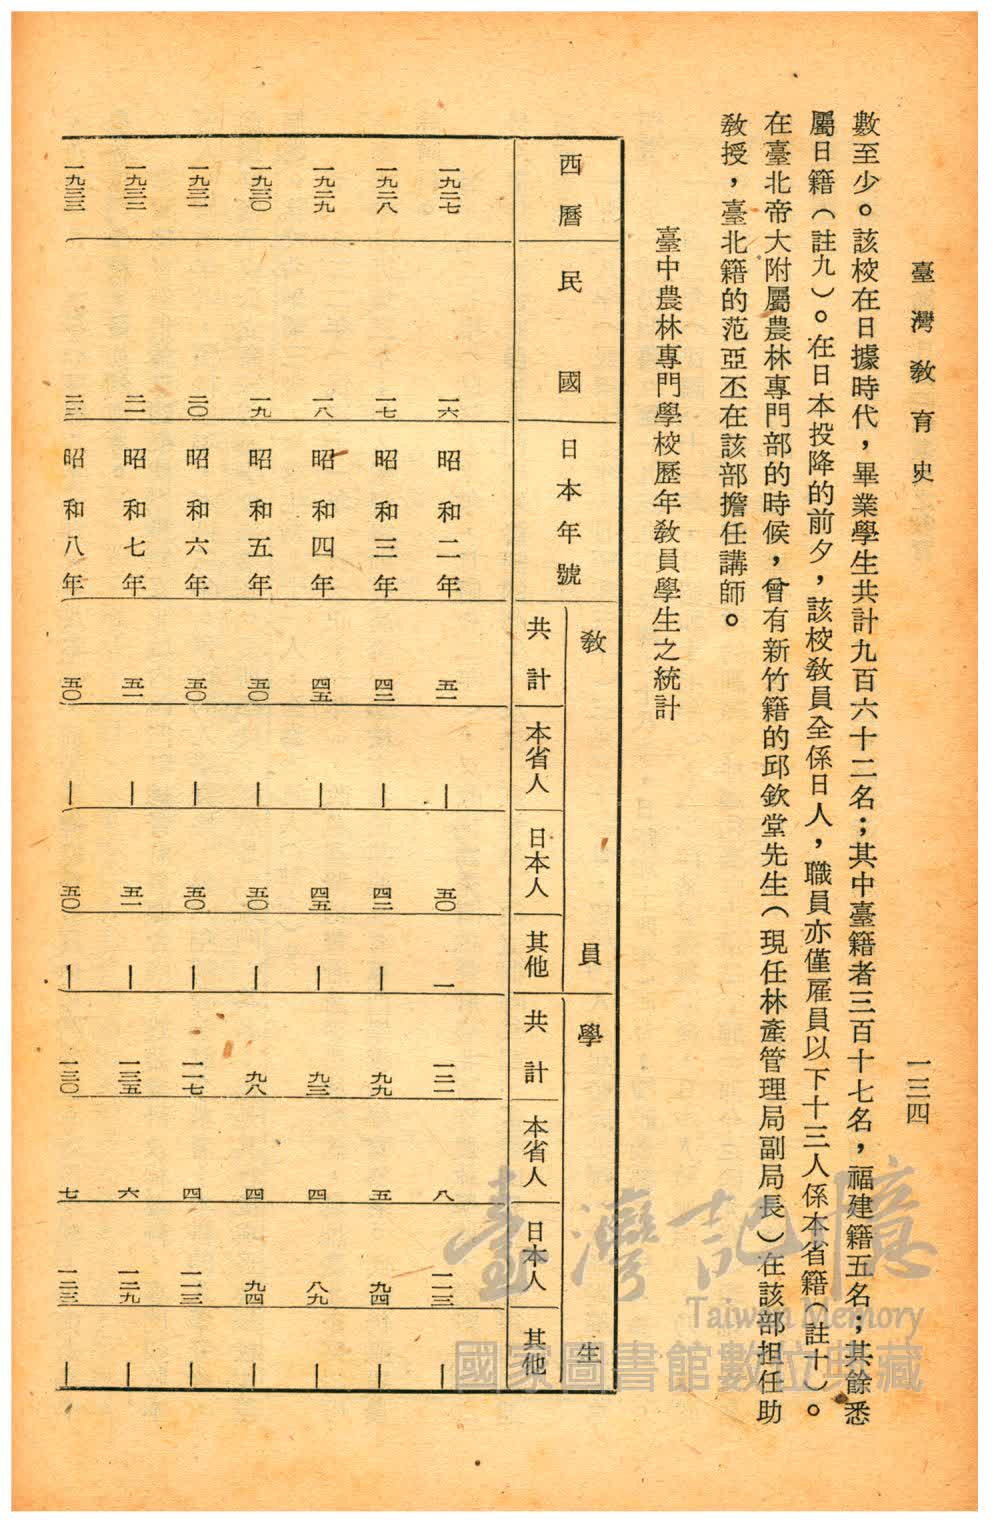 臺灣教育史
一三四
數至少。該校在日據時代，畢業學生共計九百六十二名；其中臺籍者三百十七名，福建籍五名；其餘悉
屬日籍（註九）。在日本投降的前夕，該校教員全係日人，職員亦僅雇員以下十三人係本省籍（註十）。
在臺北帝大附屬農林專門部的時候，曾有新竹籍的邱欽堂先生（現任林產管理局副局長）在該部担任助
教授，臺北籍的范亞丕在該部擔任講師。
臺中農林專門學校歷年教員學生之統計
西曆 民國 日本年號 教員 學生
共計 本省人 日本人 其他 共計 本省人 日本人 其他
一九二七 一六 昭和二年 五一 — 五〇 一 一二一 八 一一三 —
一九二八 一七 昭和三年 四二 — 四二 — 九九 五 九四 —
一九二九 一八 昭和四年 四五 — 四五 — 九三 四 八九 —
一九三〇 一九 昭和五年 五〇 — 五〇 — 九八 四 九四 —
一九三一 二〇 昭和六年 五〇 — 五〇 — 一一七 四 一一三 —
一九三二 二一 昭和七年 五一 — 五一 — 一三五 六 一二九 —
一九三三 二二 昭和八年 五〇 — 五〇 — 一三〇 七 一二三 —
臺灣記憶
Taiwan Memory
國家圖書館數位典藏